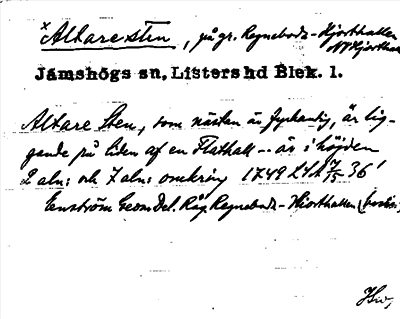 ×Altare sten, på gr. Regnebods-Hjorthallen
NV Hjorthal
Jämshögs sn, Listers hd Blek. l.
Altare Sten, som nästan är fyrkantig, är lig-
gande på liden af en Flathall -- är i höjden
2 aln: och 7 aln: omkring 1749 LSA 36'
Enström Geom Del. Råg. Regnebods-Hiorthallen